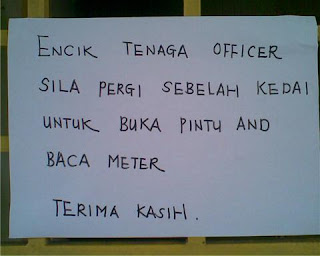 ENCIK TENAGA OFFICER
SILA PERGI SEBELAH KEDAI
UNTUK BUKA PINTU AND
BACA METER
TERIMA KASIH.